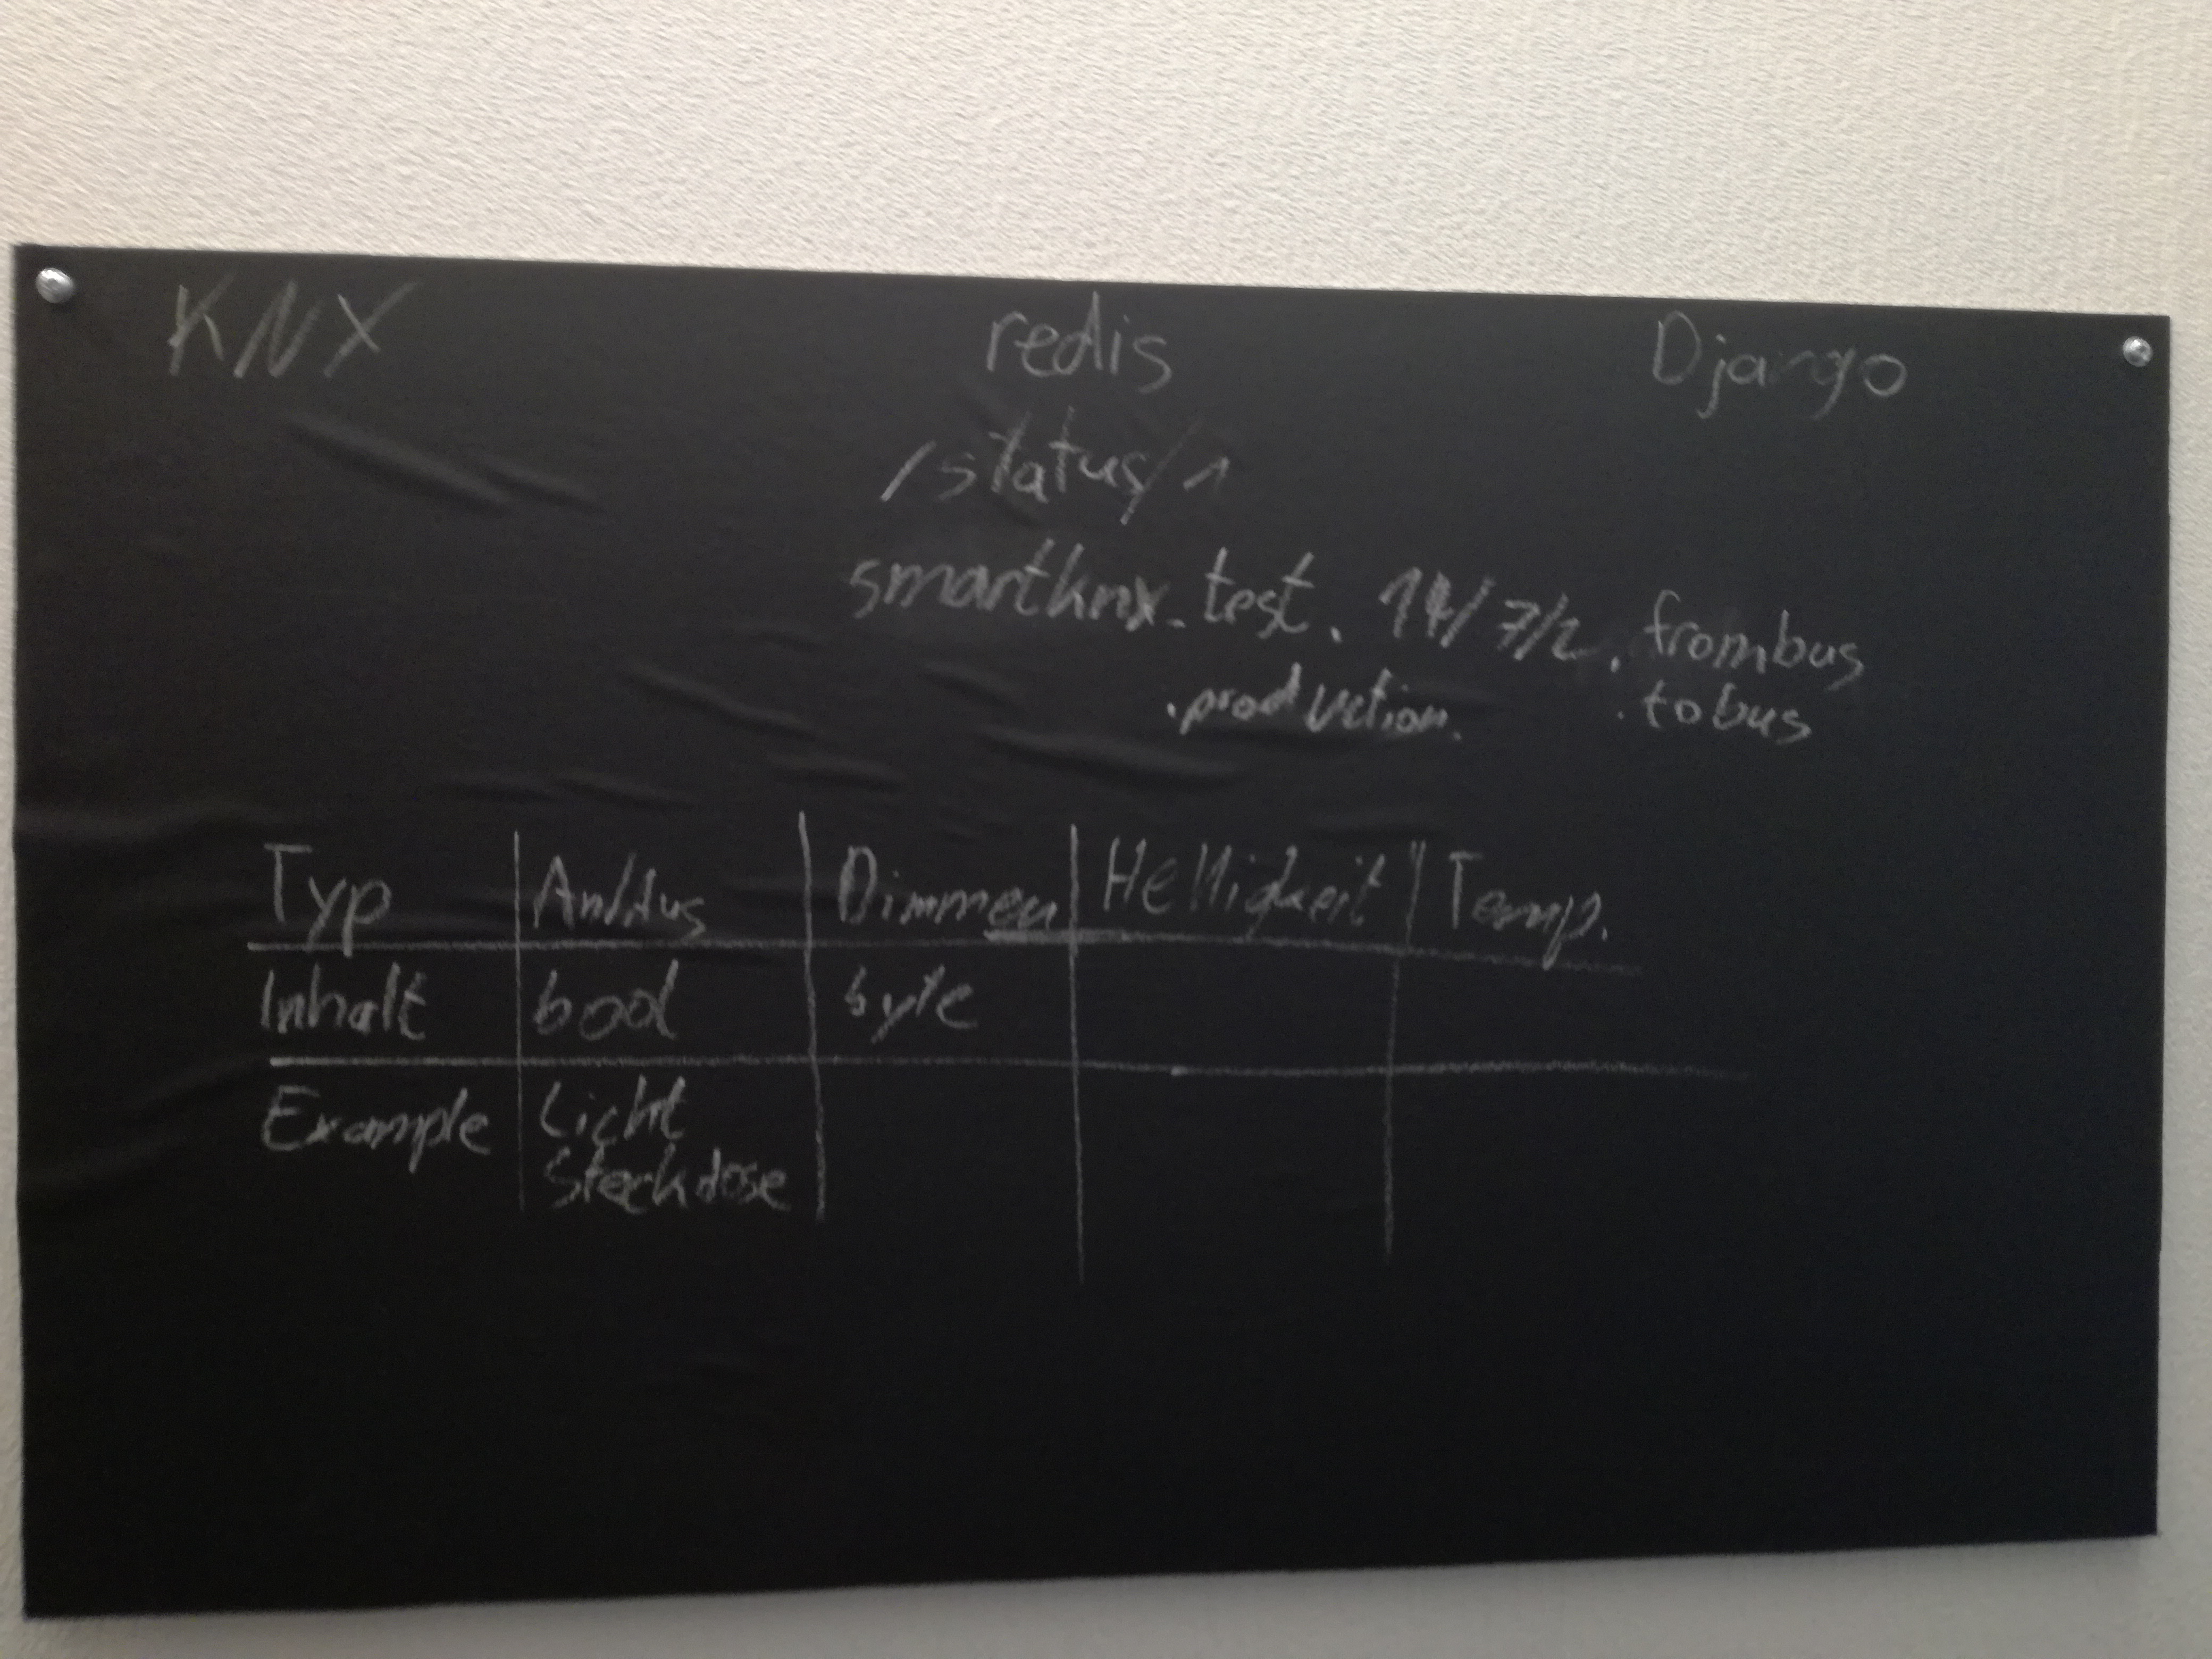 KNX redis Django
/status/1
smartknx_test. 14/7/2. frombus
.production. .tobus
Typ An/Aus Dimmen Helligkeit Temp.
Inhalt bool byte
Example Licht
Steckdose